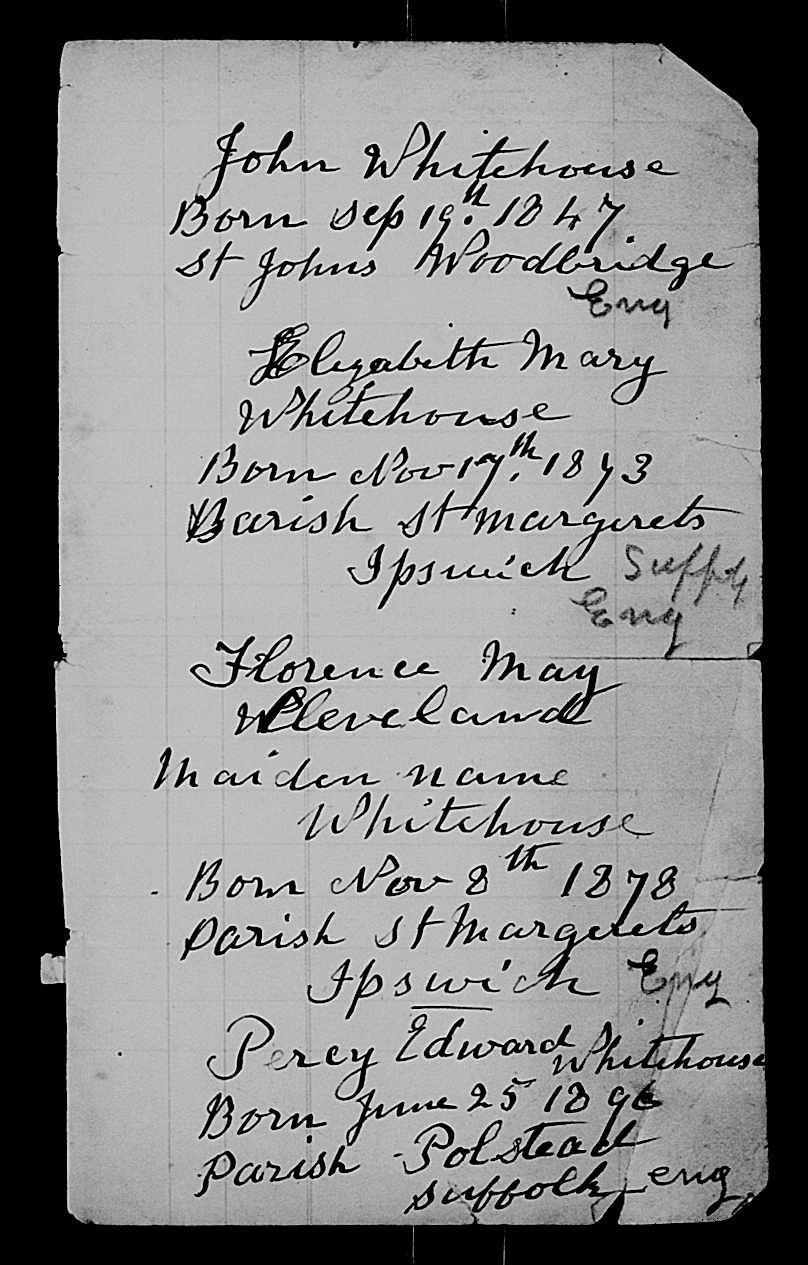 John Whitehouse
Born Sep 19th. 1847
St Johns Woodbridge
Eng
Elizabeth Mary
Whitehouse
Born Nov 17th. 1873
Parish St Margerets
Ipswich Suffolk
Eng
Florence May
Cleveland
Maiden name
Whitehouse
Born Nov 8th 1878
Parish St Margerets
Ipswich Eng
Percy Edward Whitehouse
Born June 25 1896
Parish Polstead
Suffolk eng